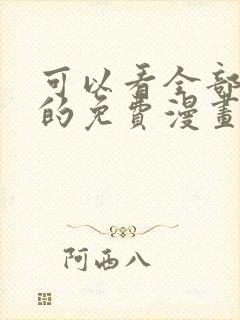 可以看全部
的免費漫畫
阿西八